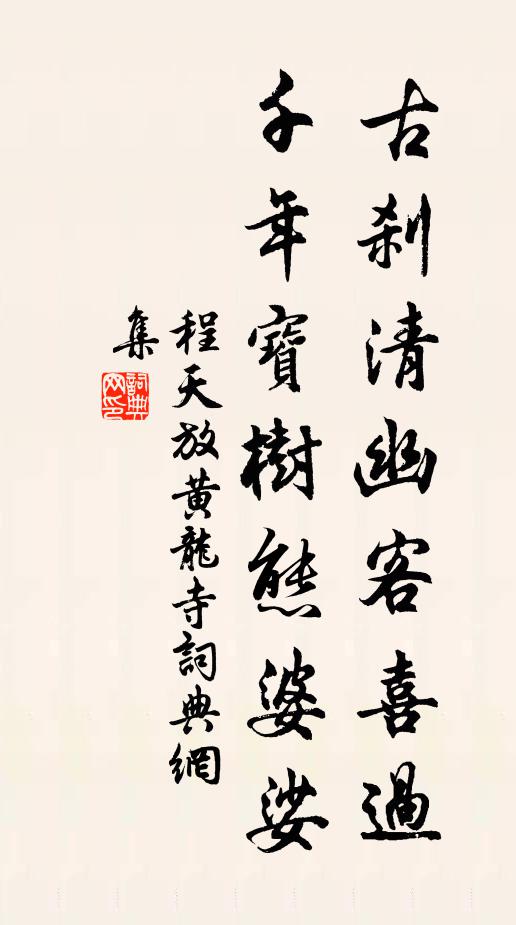 古剎清幽客喜過
千年寶樹態婆娑
程天放黃龍寺詞典網
集
詞典
网印